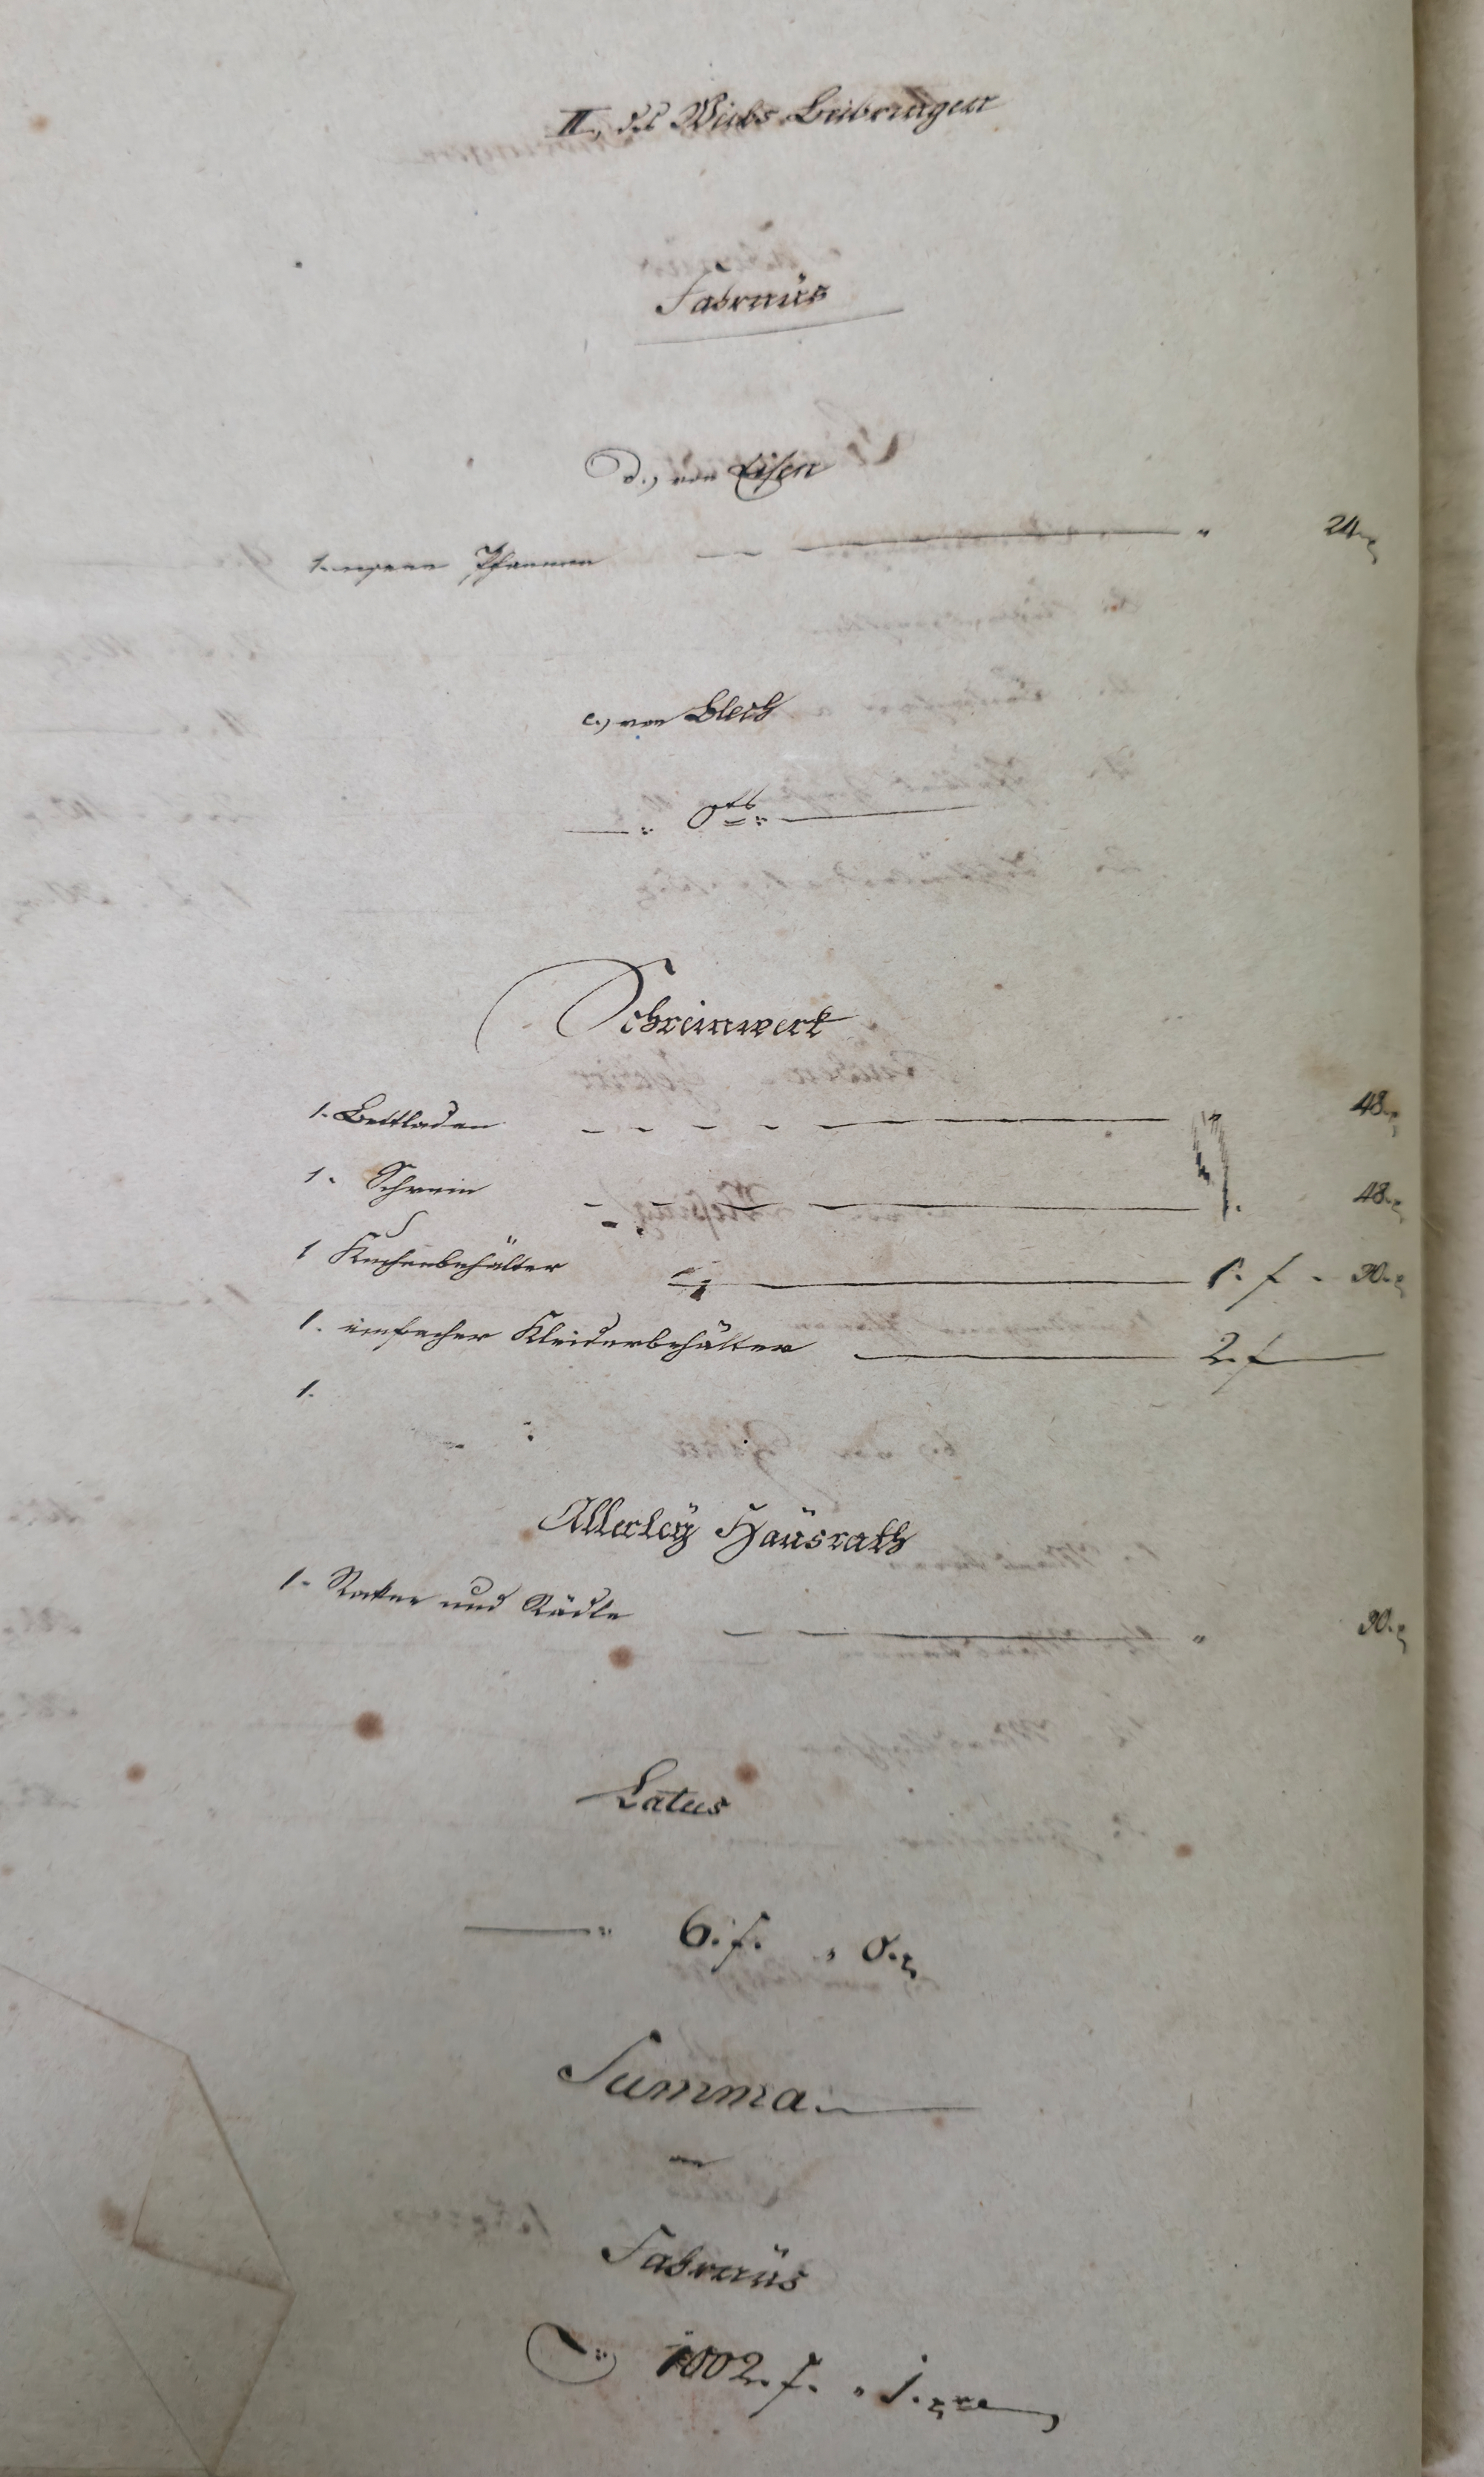 II., des Weibs Beibringen
Fahrnüs
d., von Eisen
1. eysene Pfannen — — " 24.x
e., von Blech
—— " 0tb. " ——
Schreinwerk
1. Bettladen — — — — 48.x
1. Schrein — — — 48.x
1 Kuchenbehälter — 1. f. 30.x
1. einfacher Kleiderbehälter — 2. f —
1.
Allerleÿ Haüsrath
1. Rocken und Rädle — — " 30.x
Latus
—— " 6. f. " 0.x
Summa. ——
an
Fahrnüs
" 1002. f. " 1. x